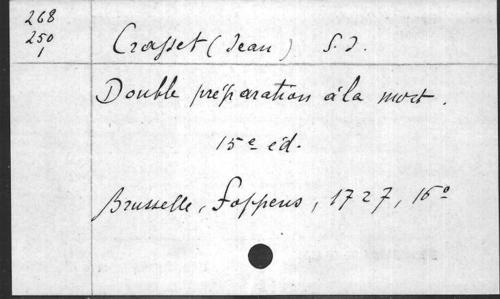 268
250
1
Crasset (Jean) S.J.
Double préparation à la mort.
15e éd.
Brusselle, Foppens, 1727, 16°